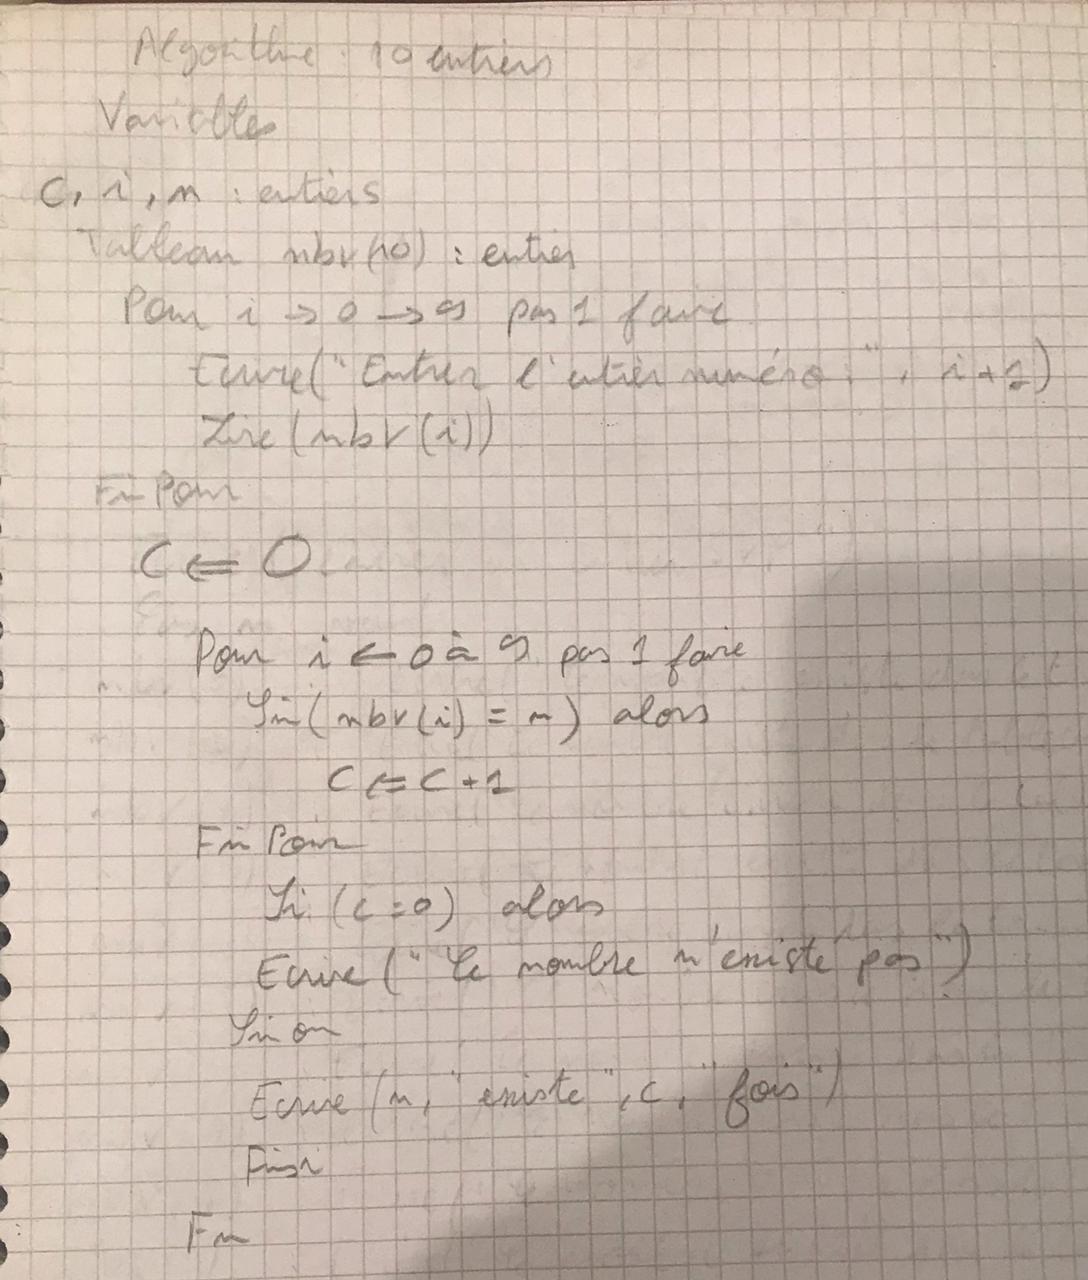 Algorithme : 10 entiers
Variables
C, i, n : entiers
Tableau nbr(10) : entier
Pour i → 0 → 9 pas 1 faire
Ecrire("Entrer l'entier numéro : ", i+1)
Lire(nbr(i))
Fin Pour
C ⇐ 0
Pour i ← 0 à 9 pas 1 faire
Si (nbr(i) = n) alors
C ⇐ C + 1
Fin Pour
Si (c = 0) alors
Ecrire ("le nombre n'existe pas")
Sinon
Ecrire (n, "existe", c, "fois")
Finsi
Fin